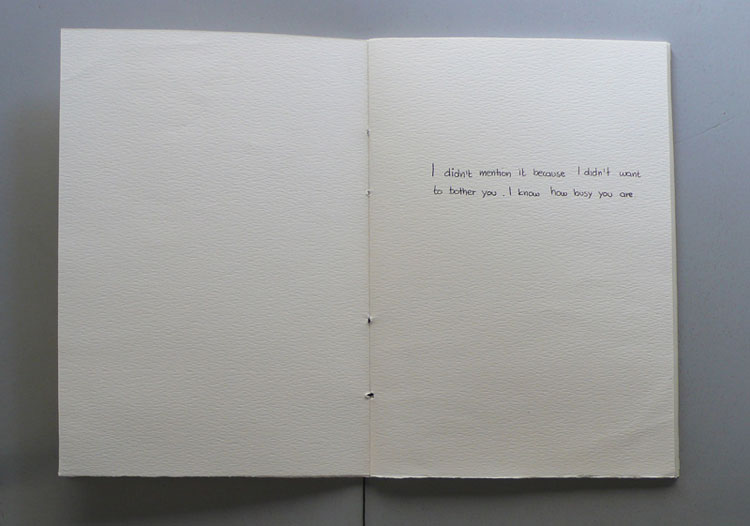 I didn't mention it because I didn't want
to bother you. I know how busy you are.